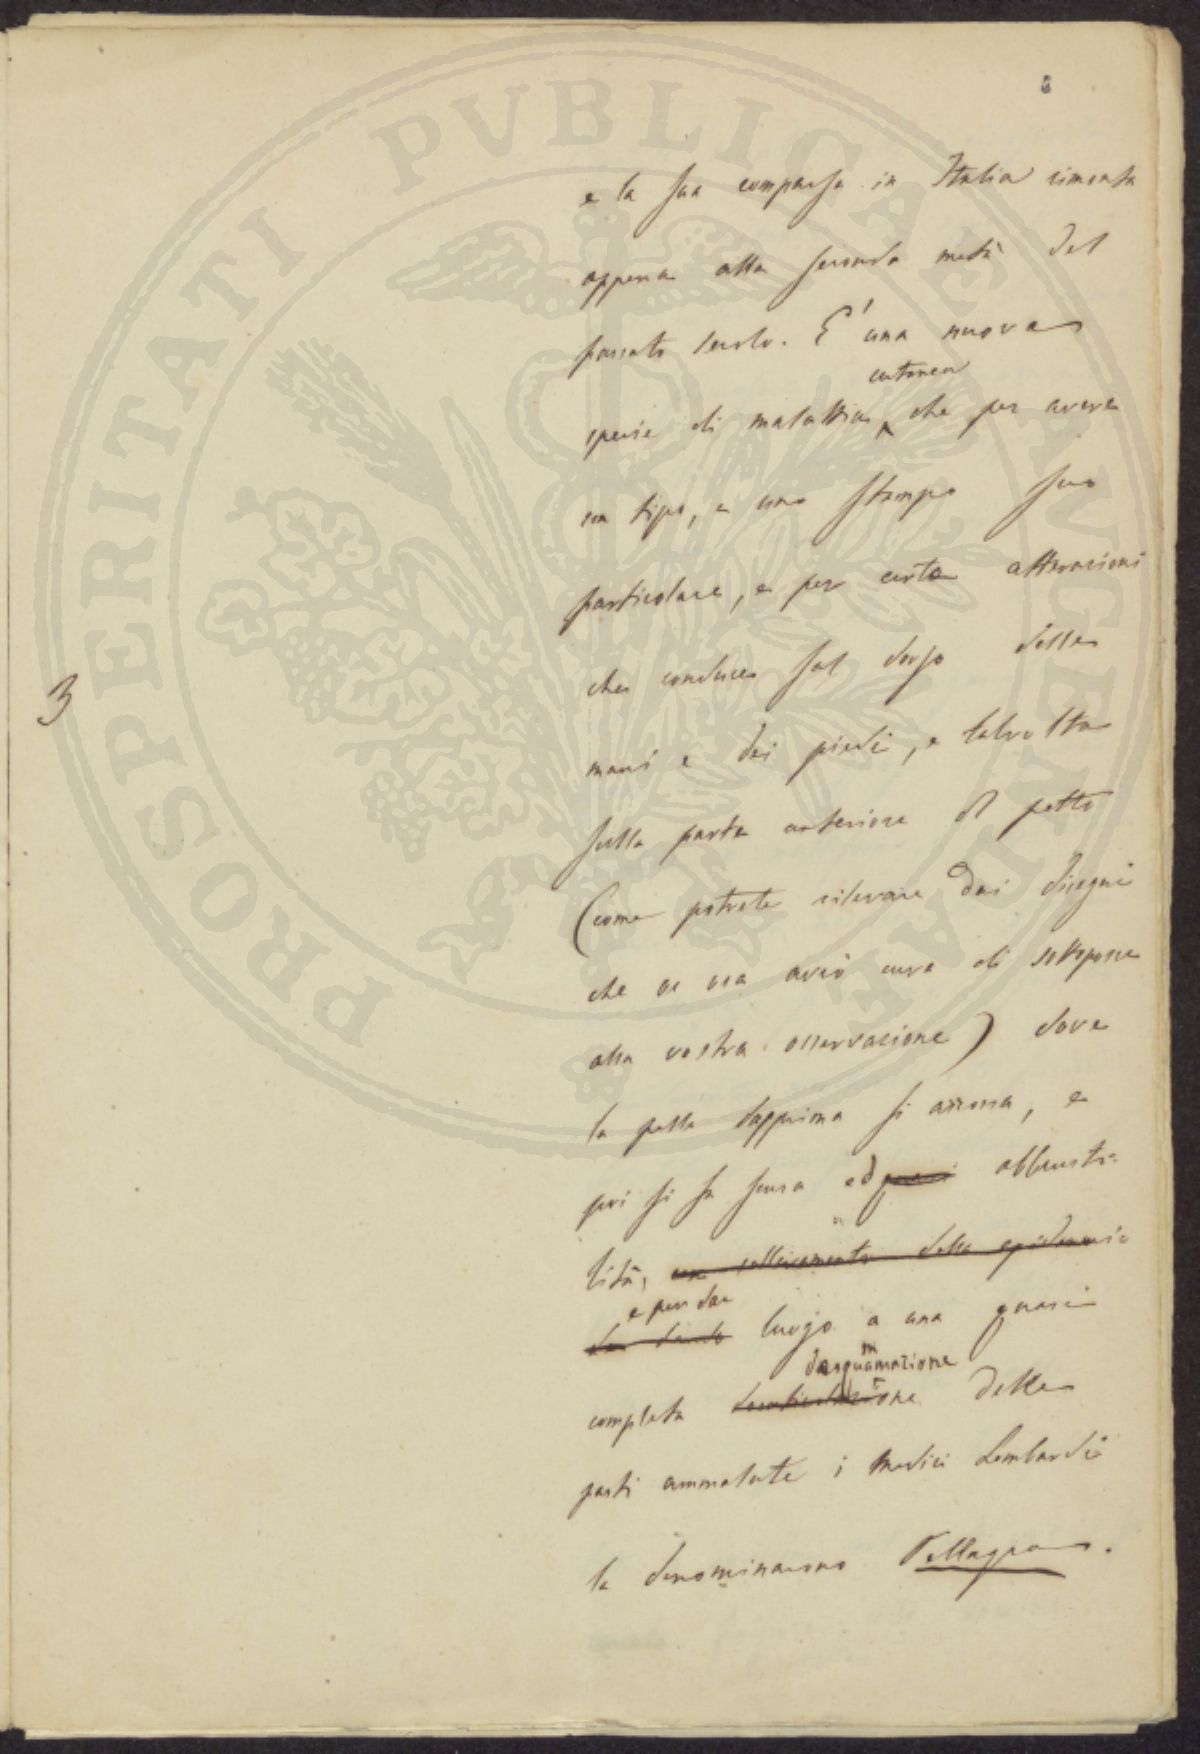 e la sua comparsa in Italia rimonta
appena alla seconda metà del
passato secolo. E' una nuova
cutanea
specie di malattia, che per avere
un tipo, e uno stampo suo
particolare, e per certe alterazioni
che conduce sul dorso delle
mani e dei piedi, e talvolta
sulla parte anteriore del petto
(come potrete rilevare dai disegni
che or ora avrò cura di sottoporre
alla vostra osservazione) dove
la pelle dapprima si arrossa, e
poi si fa scura ed abbrusti-
lita, un sollevamento della epidermide
e per dar
luogo a una quasi
desquamazione
completa delle
parti ammalate i medici Lombardi
la denominarono Pellagra.
3
PROSPERITATI PVBLICAE AVGENDAE